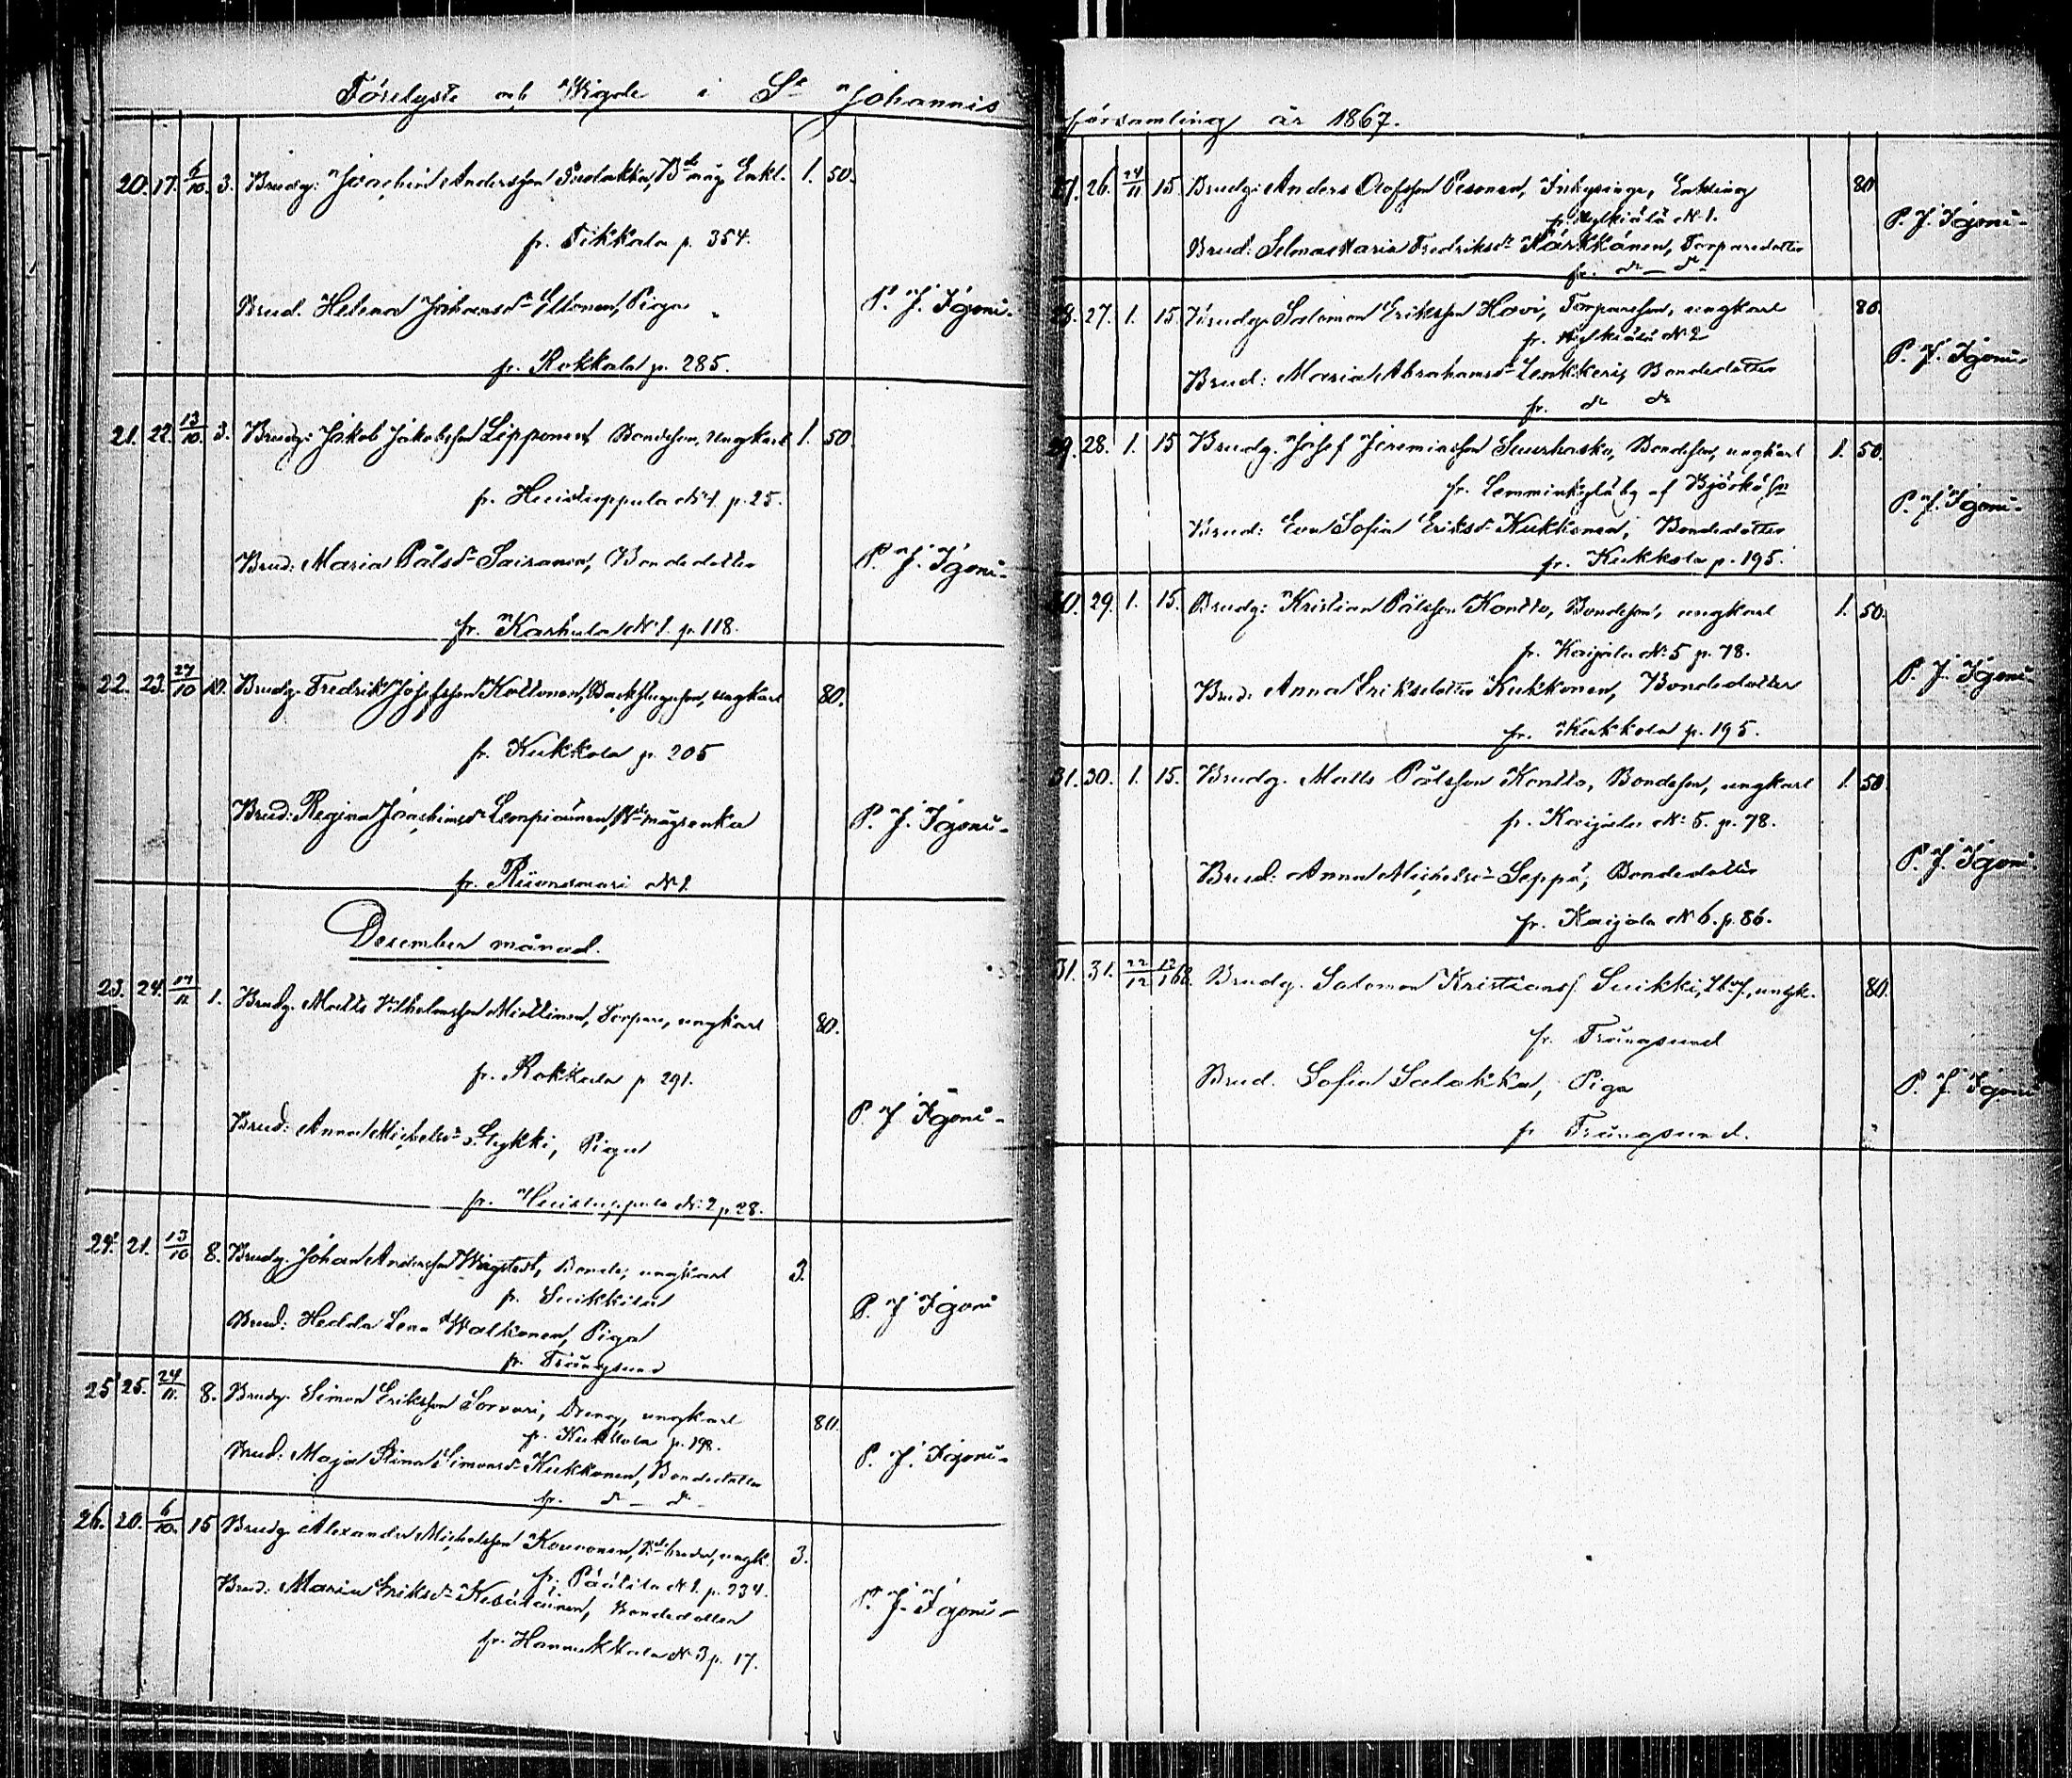 Förelyste och Wigde i S:t Johannis
20. 17. 6/10. 3. Brudg: Joachim Andersson B:de måg Enkl. 1. 50.
fr. Tikkala p. 354.
Brud. Helena Johansd:r Piga P. J. Igoni.
fr. Rokkala p. 285.
21. 22. 13/10. 3. Brudg: Jakob Jakobsson Lipponen Bondeson, ungkarl 1. 50.
fr. N:1. p. 25.
Brud: Maria Pålsd:r Sairanen, Bondedotter P. J. Igoni.
fr. Karhula N:1. p. 118.
22. 23. 27/10 10. Brudg. Fredrik Josefsson Kottonen, ungkarl 80.
fr. Kukkola p. 205
Brud: Regina Joachimsd:r Lempiäinen, B:de mågsenka P. J. Igoni.
fr. N:1
December månad.
23. 24. 17/11 1. Brudg. Matts Vilhelmsson Miettinen, Torpare, ungkarl 80.
fr. Rokkala p. 291.
Brud: Anna Michelsd:r Piga P. J. Igoni.
fr. N:2 p. 28.
24. 21. 13/10 8. Brudg. Johan Andersson Wigstedt, Bonde, ungkarl 3.
fr. Suikkila
Brud: Hedda Lena Walkonen, Piga P. J. Igoni
fr. Trångsund
25 25. 24/11. 8. Brudg. Simon Eriksson Sorvari, Dreng, ungkarl 80.
fr. Kukkola p. 198.
Brud: Maja Stina Simonsd:r Kukkonen, Bondedotter P. J. Igoni.
fr. d:o d:o
26. 20. 6/10. 15 Brudg. Alexander Michelsson Kouvonen, B:de broder, ungk. 3.
fr. Päätila N:1. p. 234.
Brud: Maria Eriksd:r Kesäläinen, Bondedotter P. J. Igoni
fr. Hannukkala N:3 p. 17.
församling år 1867.
27. 26. 24/11 15. Brudg: Anders Olofsson Pesonen, Inhysinge, Enkling 80
fr. N:1. P. J. Igoni.
Brud: Selma Maria Fredriksd:r Kärkkänen, Torparedotter
fr. d:o d:o
28. 27. 1. 15. Brudg. Salomon Eriksson Hovi, Torpareson, ungkarl 80.
fr. N:2 P. J. Igoni.
Brud: Maria Abrahamsd:r Lenkkeri, Bondedotter
fr. d:o d:o
29. 28. 1. 15 Brudg. Josef Jeremiasson Suurhasko, Bondeson, ungkarl 1. 50.
fr. by af Björkö sn P. J. Igoni.
Brud: Eva Sofia Eriksd:r Kukkonen, Bondedotter
fr. Kukkola p. 195.
30. 29. 1. 15. Brudg: Kristian Pålsson Kontto, Bondeson, ungkarl 1. 50.
fr. Kaijala N:5 p. 78.
Brud: Anna Eriksdotter Kukkonen, Bondedotter P. J. Igoni.
fr. Kukkola p. 195.
31. 30. 1. 15. Brudg. Matts Pålsson Kontto, Bondeson, ungkarl 1. 50
fr. Kaijala N:5. p. 78.
Brud: Anna Michelsd:r Seppä, Bondedotter P. J. Igoni
fr. Kaijala N:6. p. 86.
31. 31. 22/12 12/1 68. Brudg. Salomon Kristianss. Suikki, ungk. 80.
fr. Trångsund
Brud. Sofia Salakka, Piga P. J. Igoni
fr Trångsund.